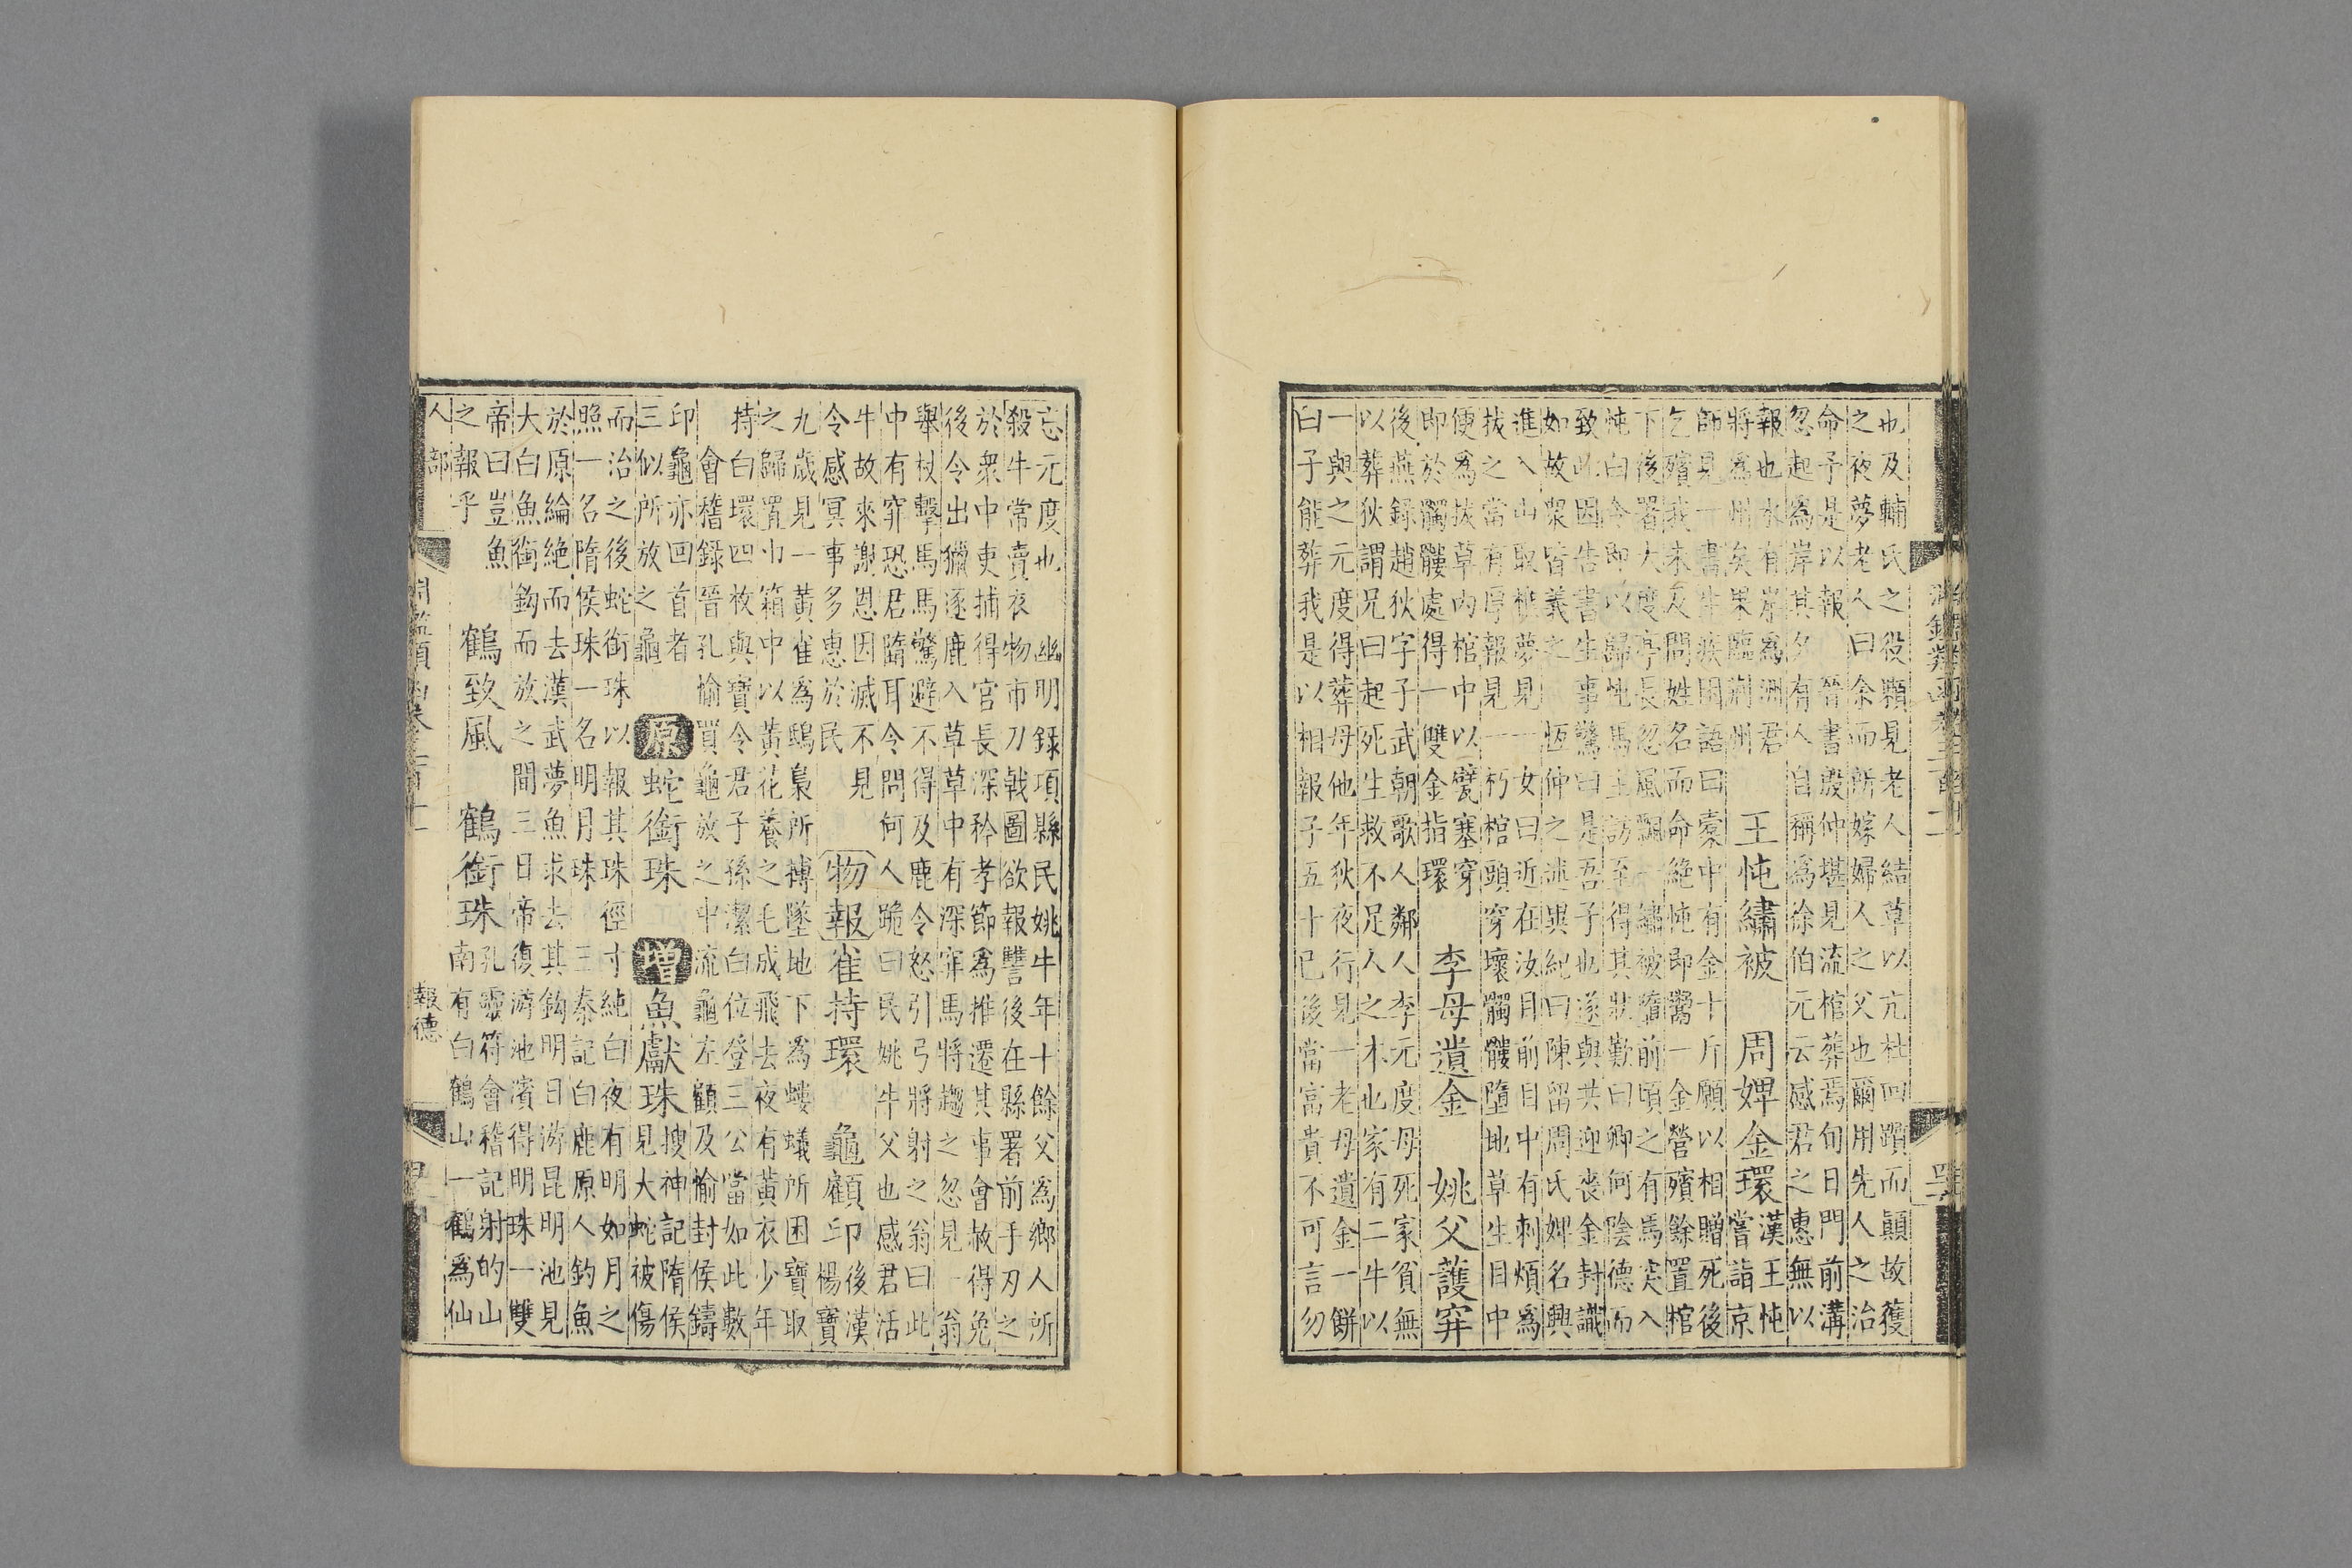 也及輔氏之役顆見老人結草以亢杜回躓而顛故獲
之夜夢老人曰余而所嫁婦人之父也爾用先人之治
命予是以報 晉書殷仲堪見流棺葬焉旬日門前溝
忽起為岸其夕有人自稱為徐伯元云感君之惠無以
報也水有岸為洲君
將為州矣果臨荊州
王忳繡被 周婢金環
漢王忳
嘗詣京
師見一書生疾困語曰橐中有金十斤願以相贈死後
乞殯我未及問姓名而命絕忳即鬻一金營殯餘置棺
下後署大度亭長忽風飄一繡被墮前頃之有馬突入
忳曰今即以歸忳馬主訪至得其狀歎曰卿何陰德而
致此因告書生事驚曰是吾子也遂與共迎喪金封識
如故衆皆義之 恆仲之述異紀曰陳留周氏婢名興
進入山取樵夢見一女曰近在汝目前目中有刺煩為
拔之當有厚報見一朽棺頭穿壞髑髏墮地草生目中
便為拔草內棺中以甓塞穿
即於髑髏處得一雙金指環
李母遺金 姚父護穽
後燕錄趙狄字子武朝歌人鄰人李元度母死家貧無
以葬狄謂兄曰起死生救不足人之本也家有二牛以
一與之元度得葬母他年狄夜行見一老母遺金一餅
曰子能葬我是以相報子五十已後當富貴不可言勿
忘元度也 幽明錄項縣民姚牛年十餘父為鄉人所
殺牛常賣衣物市刀戟圖欲報讐後在縣署前手刃之
於衆中吏捕得官長深矜孝節為推遷其事會赦得免
後令出獵逐鹿入草草中有深穽馬將趨之忽見一翁
舉杖擊馬馬驚避不得及鹿令怒引弓將射之翁曰此
中有穽恐君隮耳令問何人跪曰民姚牛父也感君活
牛故來謝恩因滅不見
令感冥事多惠於民
物報 雀持環 龜顧印
後漢
楊寶
九歲見一黃雀為鴟梟所搏墜地下為螻蟻所困寶取
之歸置巾箱中以黃花養之毛成飛去夜有黃衣少年
持白環四枚與寶令君子孫潔白位登三公當如此數
會稽錄晉孔愉買龜放之中流龜左顧及愉封侯鑄
印龜亦回首者
三似所放之龜
原 蛇銜珠 增 魚獻珠
搜神記隋侯
見大蛇被傷
而治之後蛇銜珠以報其珠徑寸純白夜有明如月之
照一名隋侯珠一名明月珠 三秦記白鹿原人釣魚
於原綸絕而去漢武夢魚求去其鈎明日游昆明池見
大白魚銜鈎而放之間三日帝復游池濱得明珠一雙
帝曰豈魚
之報乎
鶴致風 鶴銜珠
孔靈符會稽記射的山
南有白鶴山一鶴為仙
人部 報德